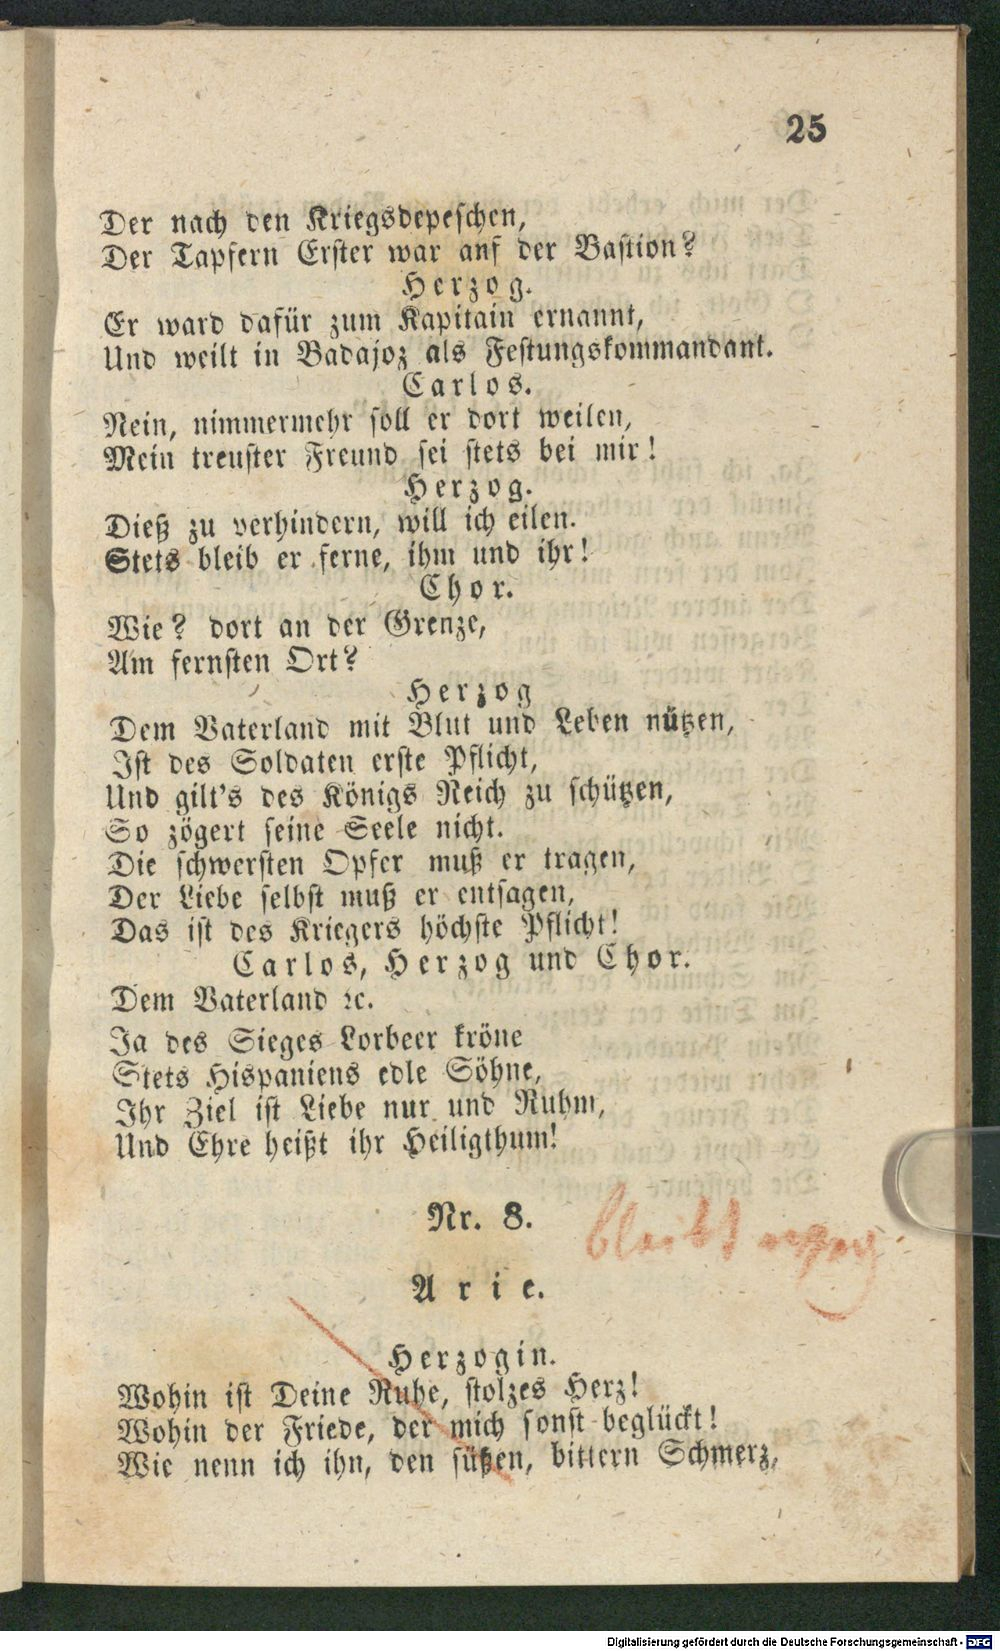 25
Der nach den Kriegsdepeschen,
Der Tapfern Erster war auf der Bastion?
Herzog.
Er ward dafür zum Kapitain ernannt,
Und weilt in Badajoz als Festungskommandant.
Carlos.
Nein, nimmermehr soll er dort weilen,
Mein treuster Freund sei stets bei mir!
Herzog.
Dieß zu verhindern, will ich eilen.
Stets bleib er ferne, ihm und ihr!
Chor.
Wie? dort an der Grenze,
Am fernsten Ort?
Herzog
Dem Vaterland mit Blut und Leben nützen,
Ist des Soldaten erste Pflicht,
Und gilt's des Königs Reich zu schützen,
So zögert seine Seele nicht.
Die schwersten Opfer muß er tragen,
Der Liebe selbst muß er entsagen,
Das ist des Kriegers höchste Pflicht!
Carlos, Herzog und Chor.
Dem Vaterland ꝛc.
Ja des Sieges Lorbeer kröne
Stets Hispaniens edle Söhne,
Ihr Ziel ist Liebe nur und Ruhm,
Und Ehre heißt ihr Heiligthum!
Nr. 8.
bleibt
Arie.
Herzogin.
Wohin ist Deine Ruhe, stolzes Herz!
Wohin der Friede, der mich sonst beglückt!
Wie nenn ich ihn, den süßen, bittern Schmerz,
Digitalisierung gefördert durch die Deutsche Forschungsgemeinschaft - DFG